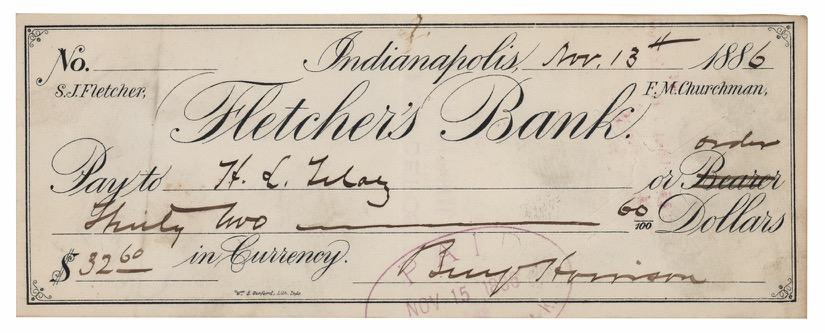 No. Indianapolis, Nov. 13th 1886
S.J. Fletcher, F. M. Churchman,
Fletcher's Bank.
order
Pay to H. L. or Bearer
Thirty two 60/100 Dollars
$ 32 60 in Currency.
Benj Harrison
PAID
NOV 15 1886